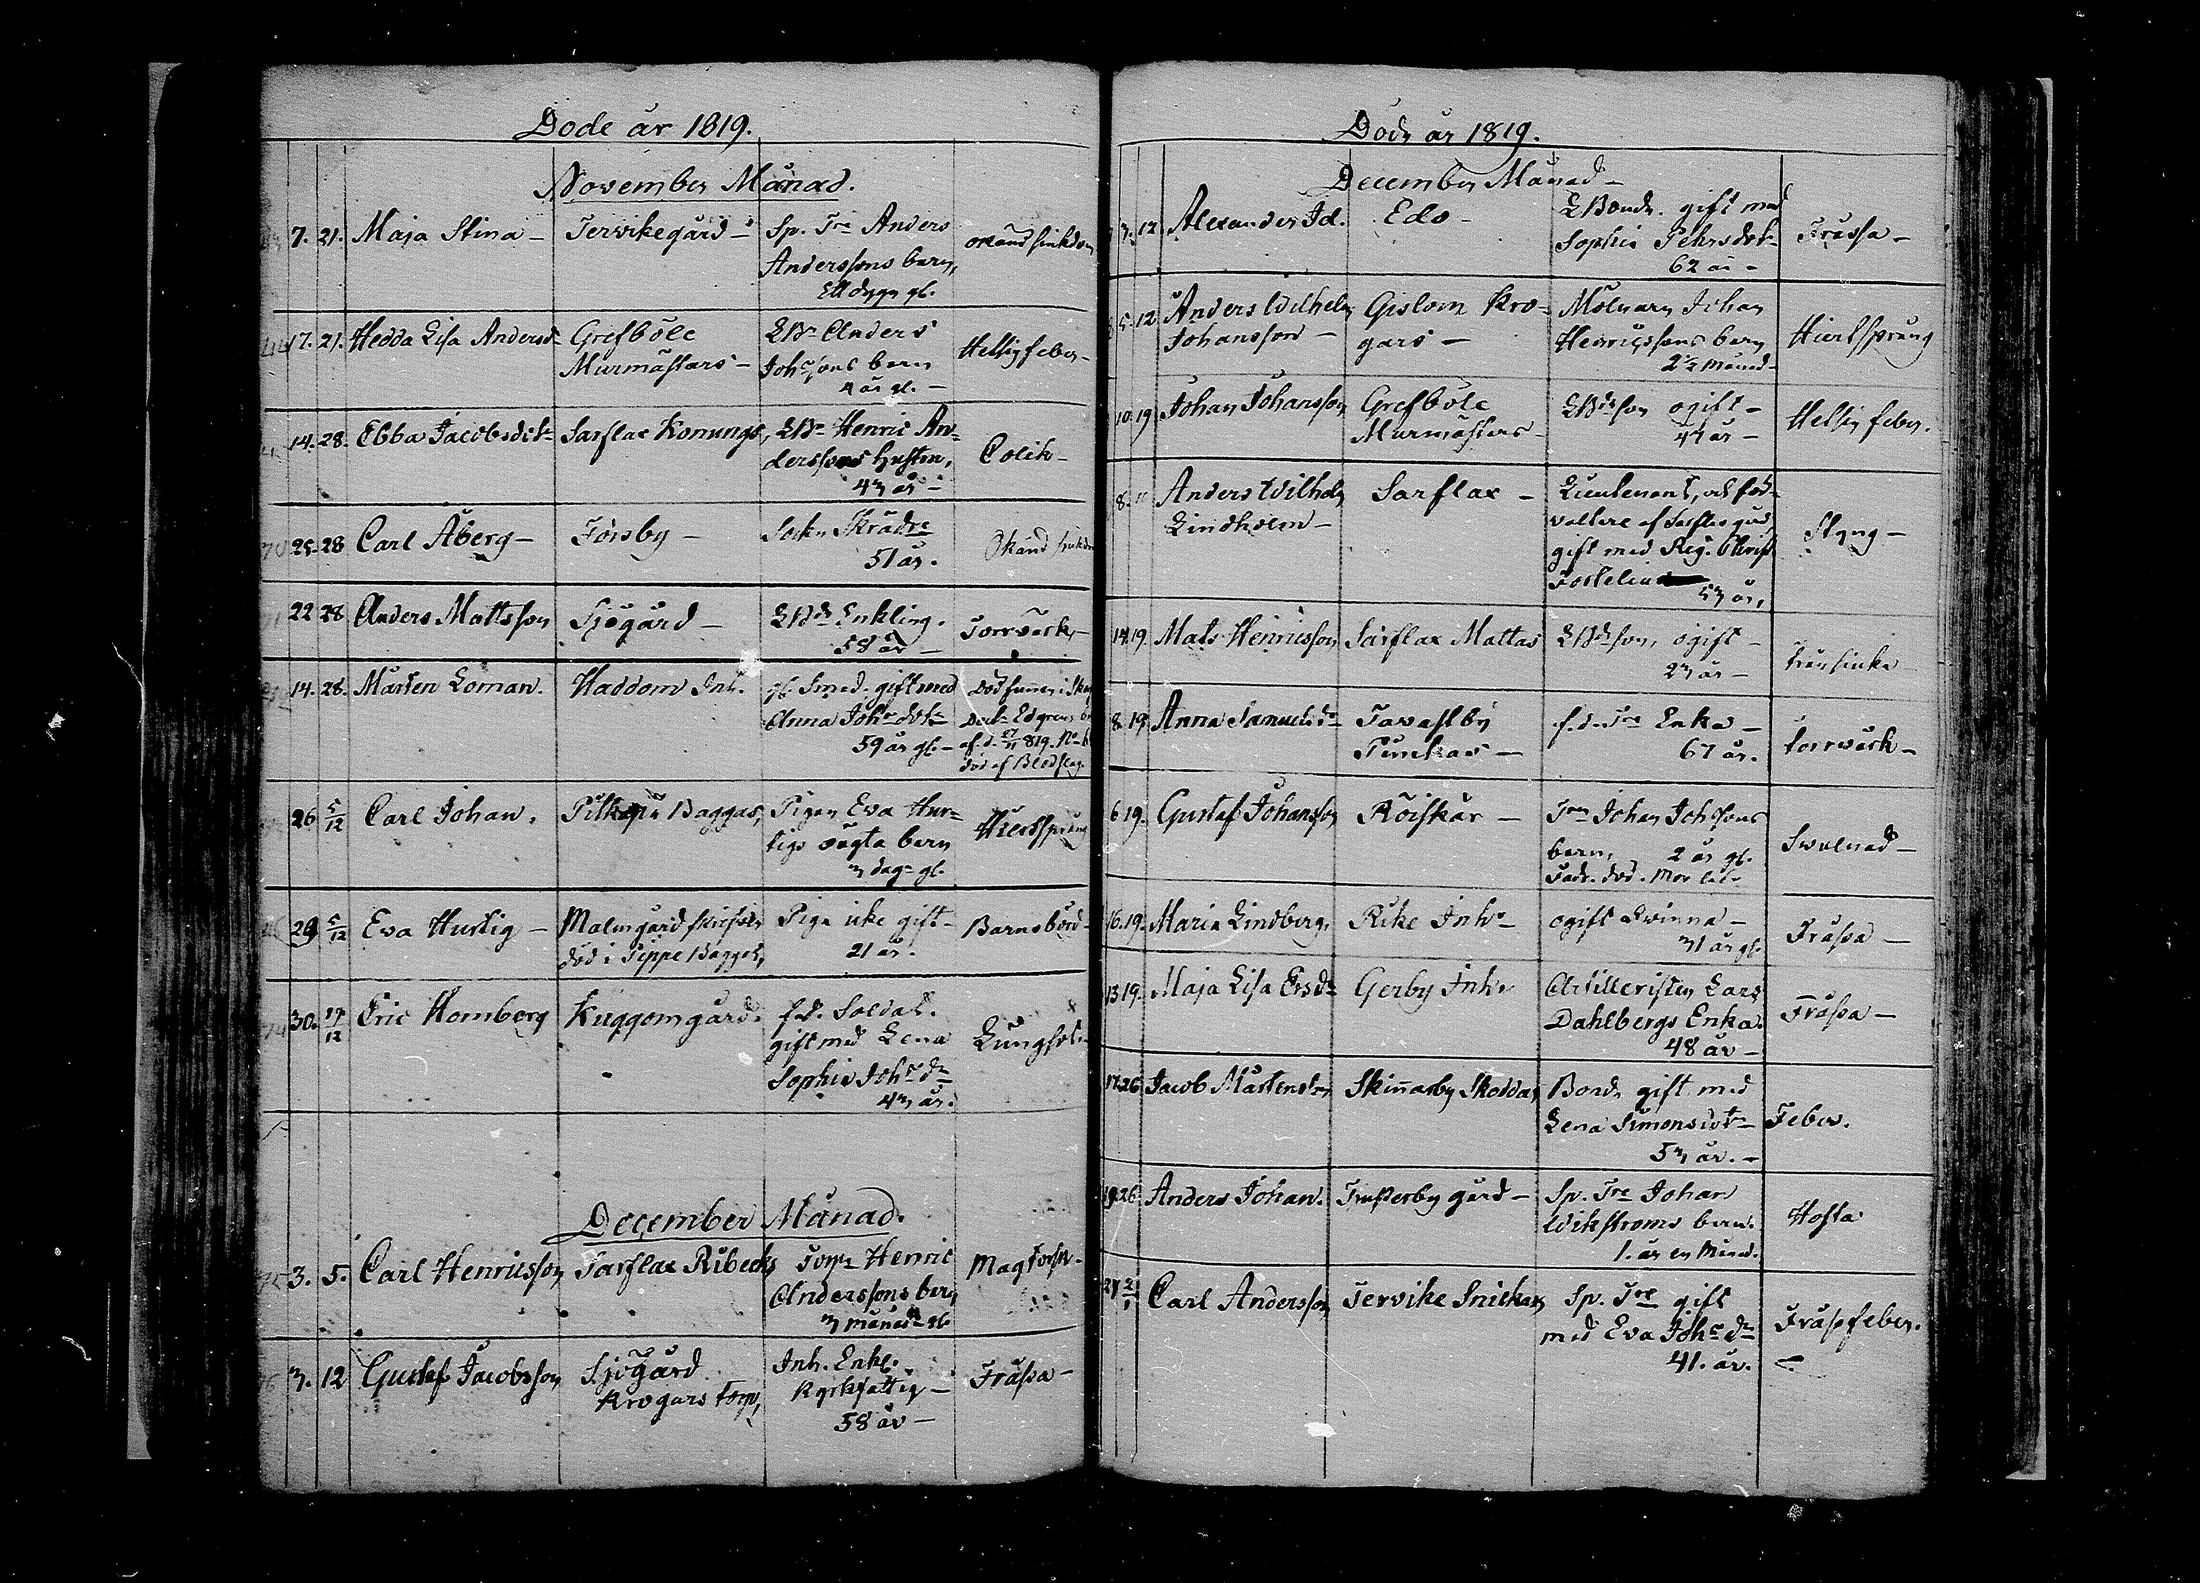 Döde år 1819.
November Månad.
7. 21. Maja Stina — Tervikegård — Sp. Tre Anders
Anderssons barn,
Ett dygn gl.
okänd sjukdom
17. 21. Hedda Lisa Andersd. Grefböle
Murmästars — LBr Anders
Johssons barn
4 år gl. —
Hetsig feber —
14. 28. Ebba Jacobsdotr Sarflax Konungs, LBr Henric An-
derssons hustru,
47 år —
Colik —
25. 28 Carl Åberg — Forsby — Sockn Skrädre
51 år.
Okänd sjukdom
22 28 Anders Mattsson Sjögård — LBde Enkling.
58 år —
Torrvärk —
14. 28. Mårten Loman. Haddom Inh. gl. Smed. gift med
Anna Johsdotr
59 år gl. —
Död funnen i
Edgrens
af d. 27/11 819. No
död af Blodslag
26 5/12 Carl Johan. Baggas, Pigan Eva Hur-
tigs oägta barn
7 dagr gl.
Hiertsprång
29 5/12 Eva Hurtig — Malmgård
död i Baggas, Piga icke gift —
21 år.
Barnsbörd —
30. 17/12 Eric Homberg Kuggomgård. f.d. Soldat.
gift med Lena
Sophia Johs dr
47 år.
Lungsot —
December Månad.
3. 5. Carl Henricsson Sarflax Ribecks Torpr Henric
Anderssons barn
7 månadr gl.
Magtorsk —
7. 12 Gustaf Jacobsson Sjögård
Krogars torp, Inh. Enkl.
Kyrkfattig —
58 år —
Fråssa —
Döde år 1819.
December Månad —
7. 12 Alexander Id. Edo — LBonde. gift med
Sophia Pehrsdotr
62 år —
Fråssa —
5. 12 Anders Wilhelm
Johansson — Gislom Kro-
gars — Mölnarn Johan
Henricssons barn
2 1/2 månad —
Hiertsprång
10. 19 Johan Johansson Grefböle
Murmästars — LBdeson ogift —
47 år —
Hetsig feber.
8. Anders Wilhelm
Lindholm — Sarflax — Lieutenant, och för-
valtare af Sarflax gård,
gift med Reg. Christ.
57 år,
Styng —
14. 19. Mats Henricsson Sarflax Mattas LBdeson, ogift —
27 år —
8. 19. Anna Samuelsdr Tavastby
— f.d. Tre Enka —
67 år.
torrvärk —
6 19. Gustaf Johansson Röiskär — Tren Johan Johssons
barn, 2 år gl.
Fadr. död. Mor lef.
Svulnad —
16. 19. Maria Lindberg, Rike Inhs — ogift Qwinna —
71 år gl.
Fråssa —
13 19. Maja Lisa Ersdr Gerby Inhs Artilleristen Lars
Dahlbergs Enka.
48 år —
Fråssa —
17. 26. Jacob Mårtensson Skinnarby Skoddas Bonde gift med
Lena Simonsdotr —
57 år. —
Feber.
19. 26. Anders Johan. gård — Sp. Tre Johan
Wikströms barn.
1. år en Månd.
Hosta
27 2/1 Carl Andersson Tervike Snickars Sp. Tre gift
med Eva Johs dr
41. år.
Fråssfeber.